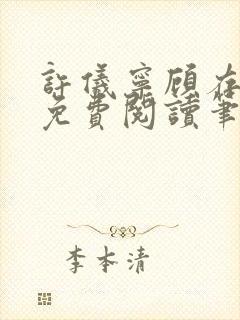 許儀寧顧在
免費閱讀筆
李本清